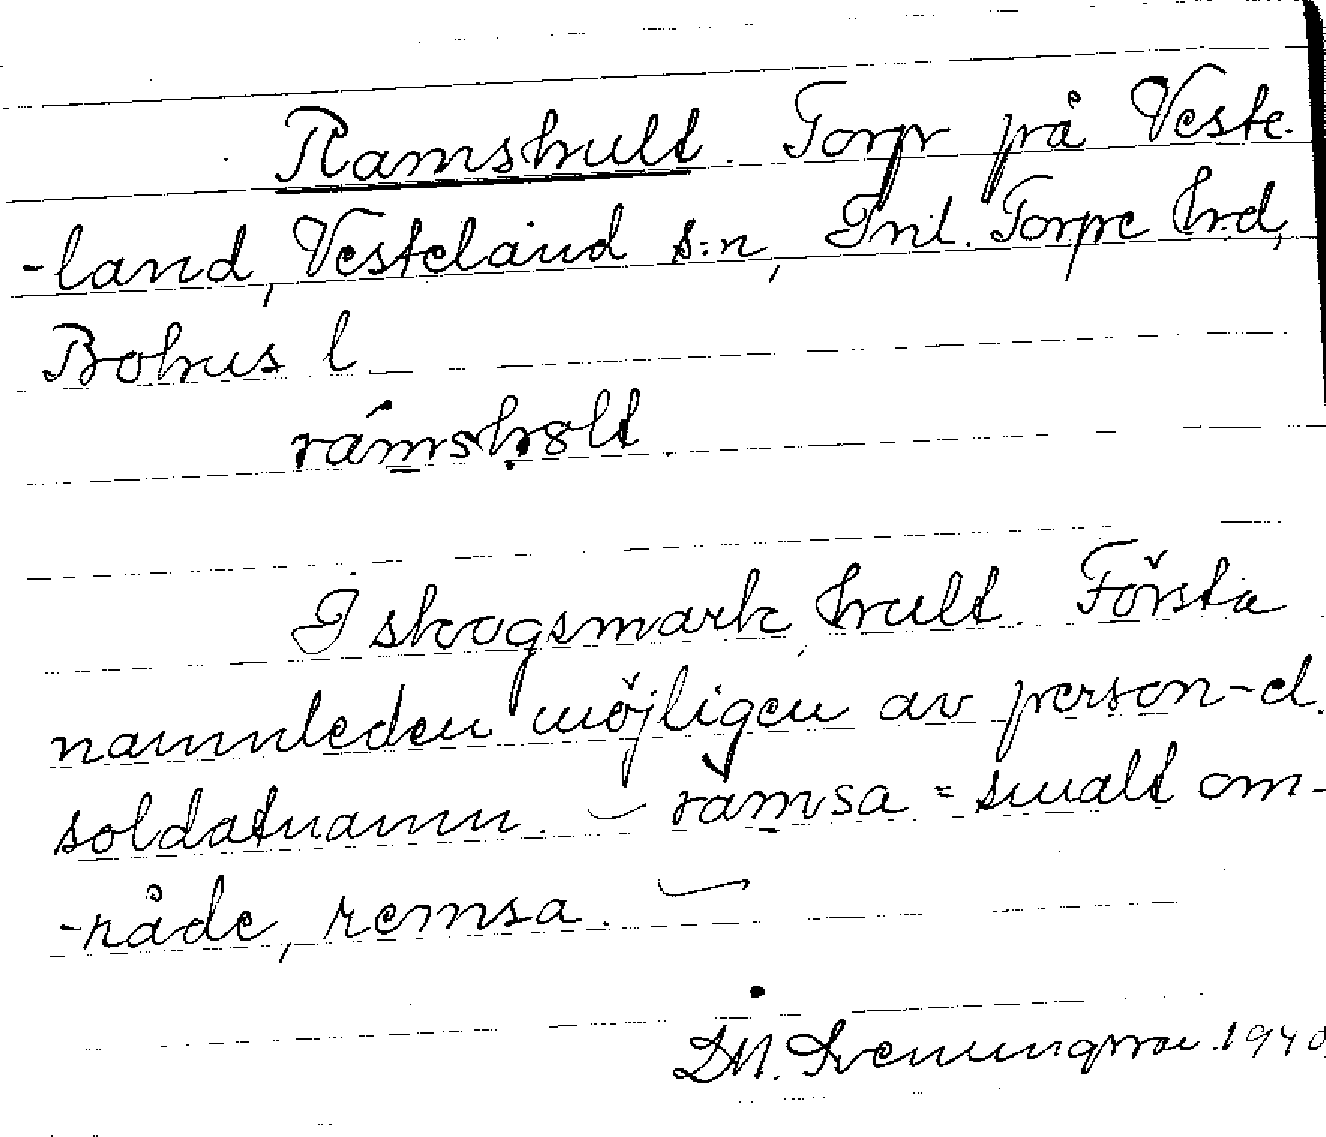 Ramshult. Torp på Veste-
-land, Vesteland s:n, Inl. Torpe hrd,
Bohus l
rámshɵlt
I skogsmark, hult. Första
namnleden möjligen av person- el.
soldatnamn. – ramsa = smalt om-
-råde, remsa. –
D.N. Svenungsson 1940.